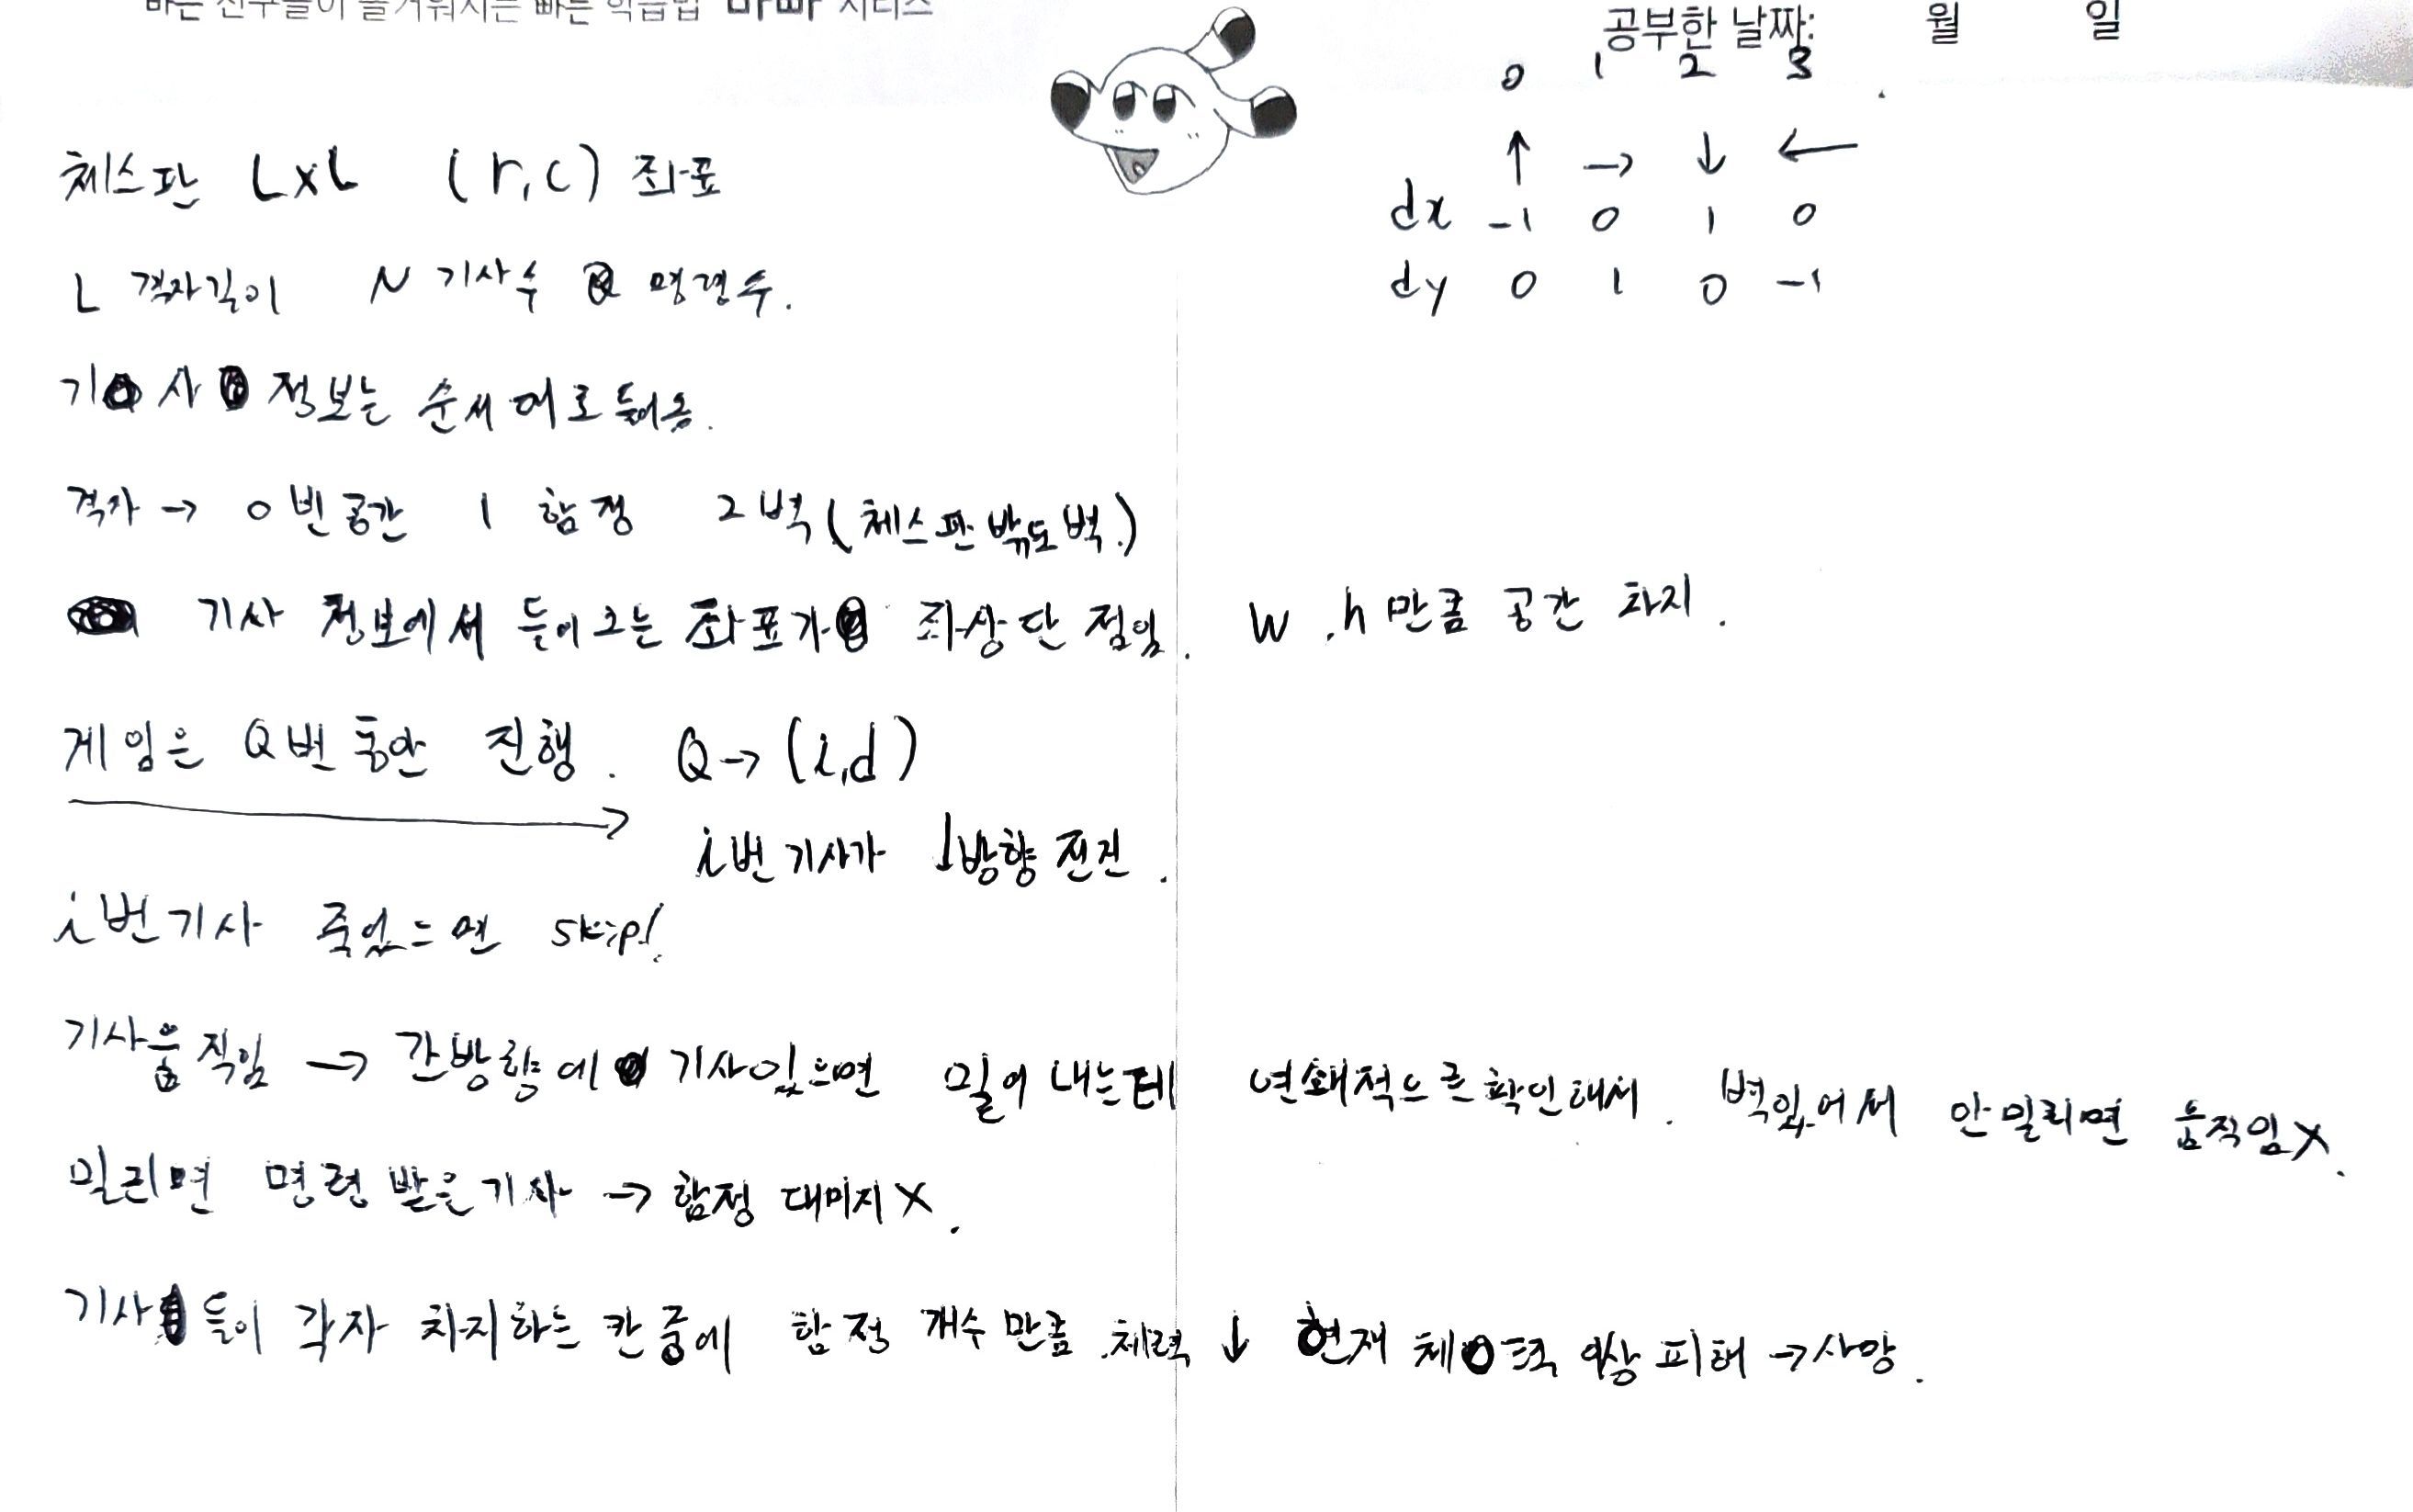 바쁜 친구들이 즐거워지는 빠른 학습법 바빠 시리즈
공부한 날짜: 월 일
0 1 2 3
↑ → ↓ ←
dx -1 0 1 0
dy 0 1 0 -1
체스판 L×L (r,c) 좌표
L 격자길이 N 기사수 Q 명령수.
기사 정보는 순서대로 들어옴.
격자 → 0 빈공간 1 함정 2 벽 (체스판 밖도 벽.)
기사 정보에서 들어오는 좌표가 좌상단 점임. w, h만큼 공간 차지.
게임은 Q번 동안 진행. Q → (i,d)
i번 기사가 d방향 전진.
i번 기사 죽었으면 skip!
기사움직임 → 간방향에 기사있으면 밀어 내는데 연쇄적으로 확인해서. 벽있어서 안밀리면 움직임X.
밀리면 명령 받은 기사 → 함정 대미지X.
기사들이 각자 차지하는 칸 중에 함정 개수 만큼 체력 ↓ 현재 체력 이상 피해 → 사망.